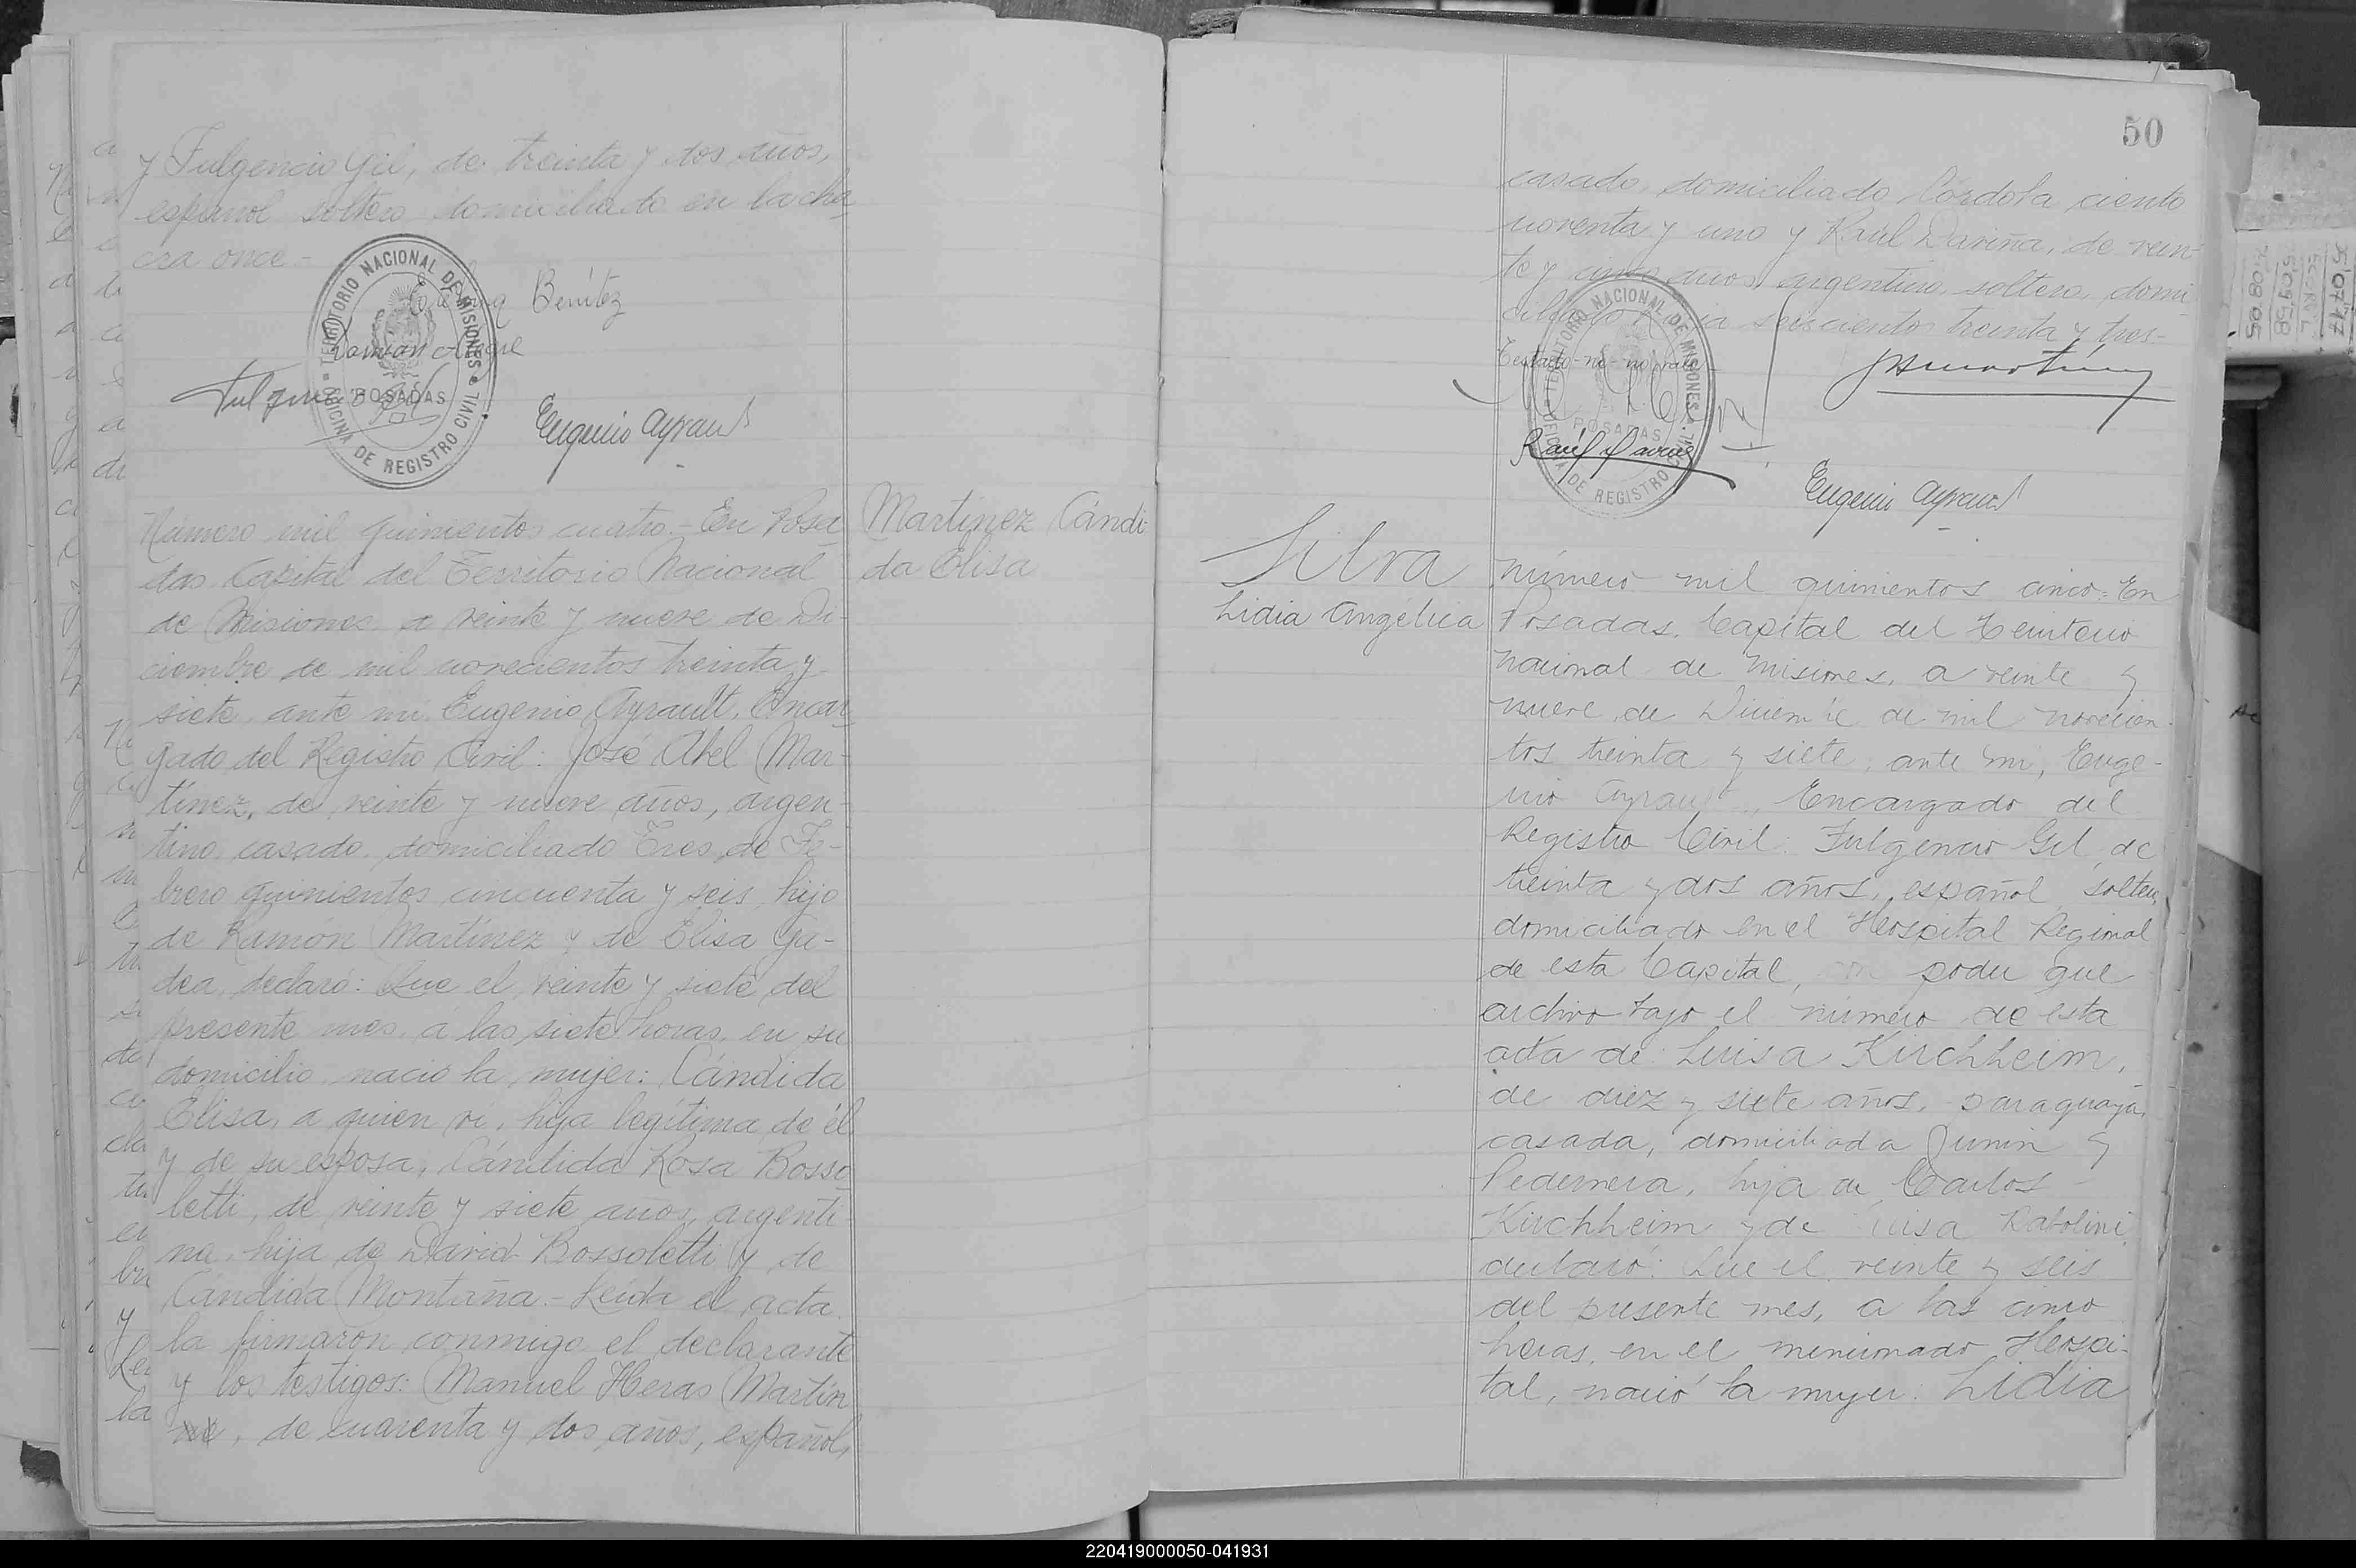 y Fulgencio Gil, de treinta y dos años,
español soltero domiciliado en la cha
cra once-
Benítez
Damián
Fulgencio Gil
Eugenio Ayrault
TERRITORIO NACIONAL DE MISIONES
POSADAS
OFICINA DE REGISTRO CIVIL
Número mil quinientos cuatro.- En Posa
das Capital del Territorio Nacional
de Misiones a veinte y nueve de Di-
ciembre de mil novecientos treinta y
siete, ante mi Eugenio Ayrault, Encar
gado del Registro Civil: José Abel Mar-
tínez, de veinte y nueve años, argen-
tino, casado, domiciliado Tres de Fe-
brero quinientos cincuenta y seis, hijo
de Ramón Martínez y de Elisa Ga-
dea, declaró: Que el veinte y siete del
presente mes, a las siete horas, en su
domicilio, nació la mujer: Cándida
Elisa, a quien vi, hija legítima de él
y de su esposa, Cándida Rosa Bosso
letti, de veinte y siete años, argenti-
na, hija de David Bossoletti y de
Cándida Montaña.- Leída el acta
la firmaron conmigo el declarante
y los testigos: Manuel Heras Martín
, de cuarenta y dos años, español,
Martínez Cándi-
da Elisa
50
casado, domiciliado Córdoba ciento
noventa y uno y Raúl Dariña, de vein-
te y cinco años, argentino, soltero, domi
ciliado seiscientos treinta y tres-
Testado-ne-no vale-
Raúl Dariña
Eugenio Ayrault
TERRITORIO NACIONAL DE MISIONES
POSADAS
OFICINA DE REGISTRO CIVIL
Silva
Lidia Angélica
Número mil quinientos cinco= En
Posadas, Capital del Territorio
Nacional de Misiones, a veinte y
nueve de Diciembre de mil novecien-
tos treinta y siete, ante mi, Euge-
nio Ayrault, Encargado del
Registro Civil: Fulgencio Gil, de
treinta y dos años, español, soltero,
domiciliado en el Hospital Regional
de esta Capital, con poder que
archivo bajo el número de esta
acta de: Luisa Kirchheim,
de diez y siete años, paraguaya,
casada, domiciliada Junín y
Pedernera, hija de Carlos
Kirchheim y de Luisa Rabolini,
declaró: Que el veinte y seis
del presente mes, a las cinco
horas, en el mencionado Hospi-
tal, nació la mujer: Lidia
50747
50958
220419000050-041931